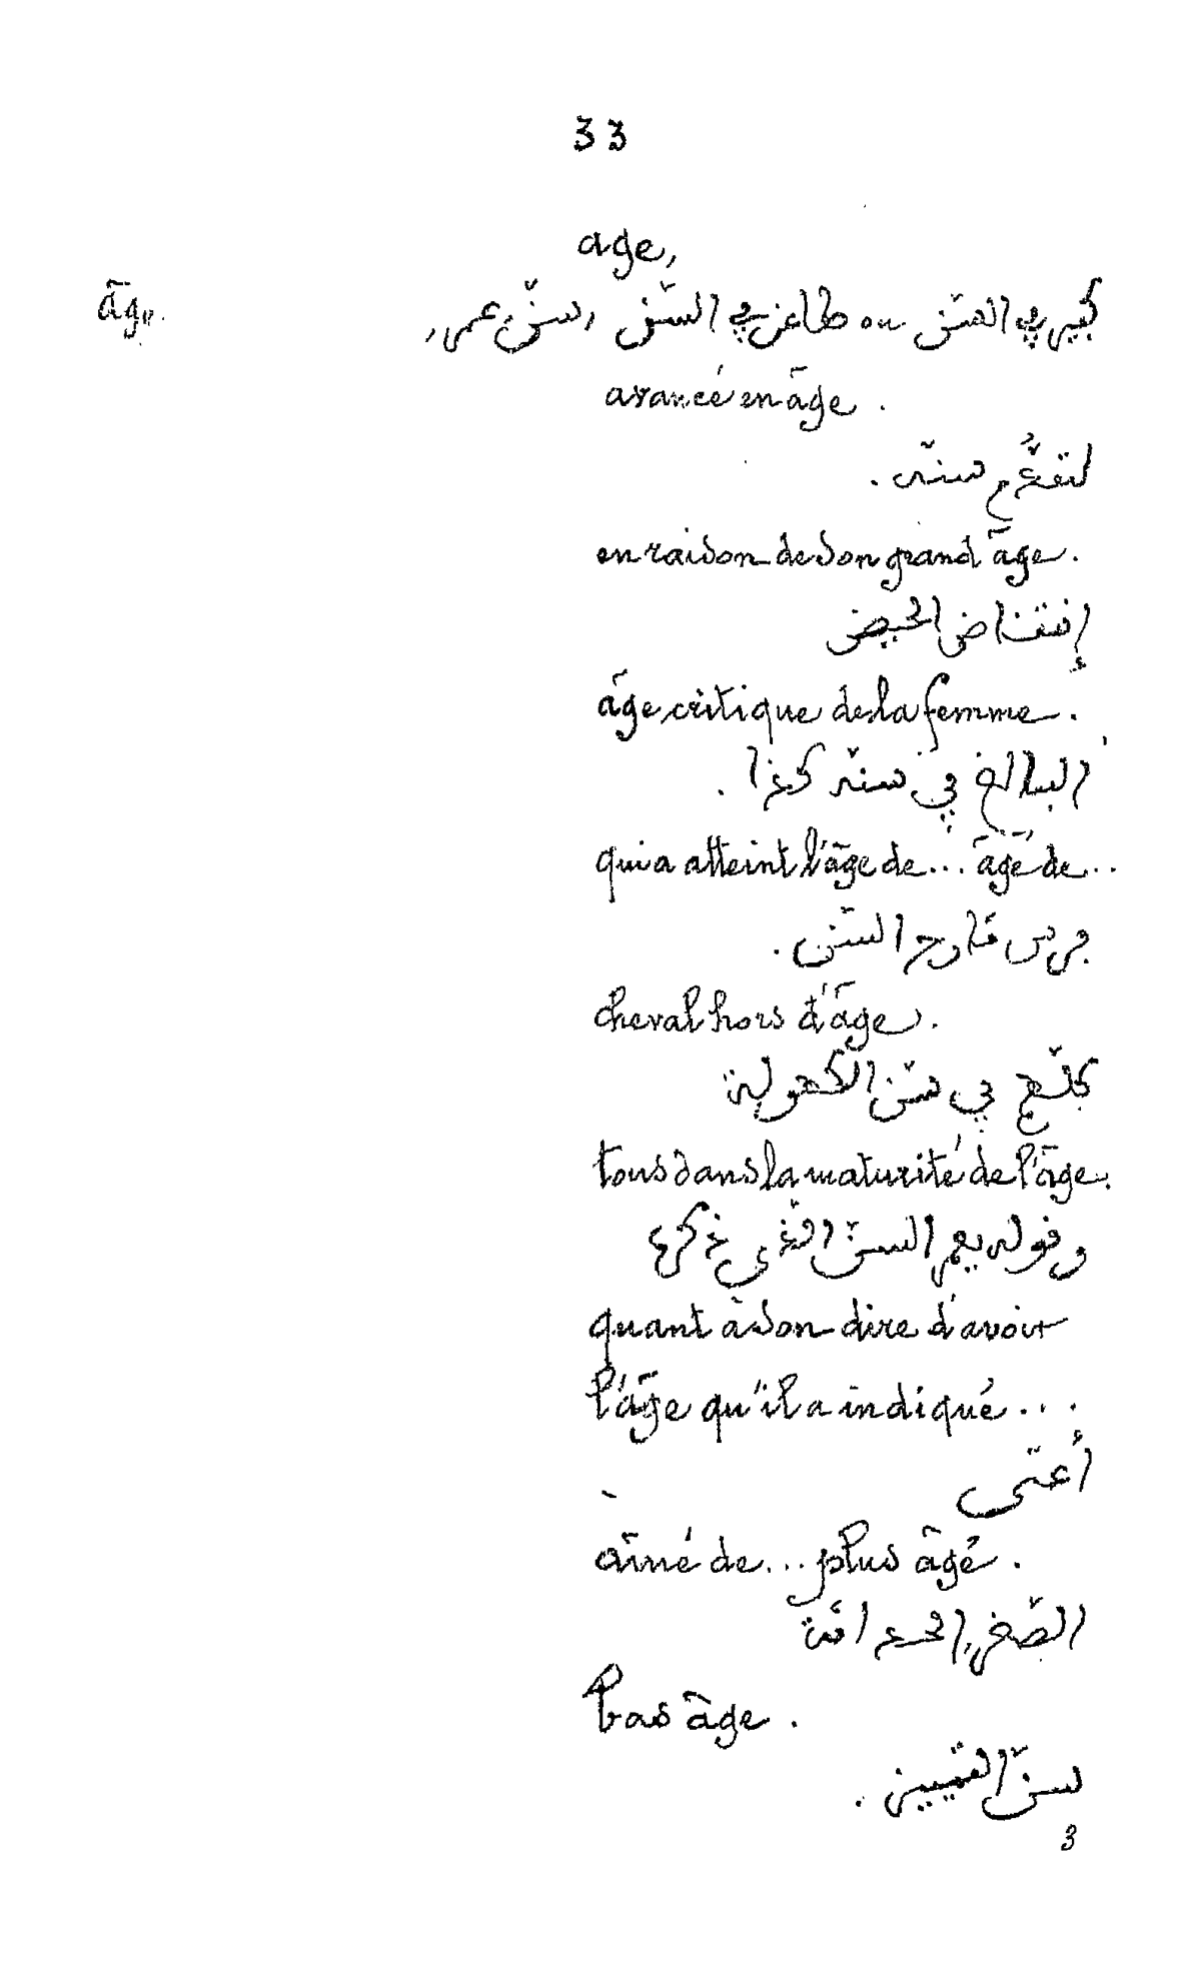 33
age,
âge.
كبير في السّنّ ou طاعن في السّنّ, سنّ, عمر,
avancé en âge.
لتقدّم سنّه.
en raison de son grand âge.
إنتفاض الحيض
âge critique de la femme.
البالغ في سنّه كذا.
qui a atteint l'âge de... âgé de...
فرس قارح السّنّ.
cheval hors d'âge.
كلّهم في سنّ الكهولة
tous dans la maturité de l'âge.
وقوله السنّ الذي ذكره
quant à son dire d'avoir
l'âge qu'il a indiqué...
أعتى
aîné de... plus âgé.
الصّغر, الحداثة
bas âge.
سنّ التمييز.
3